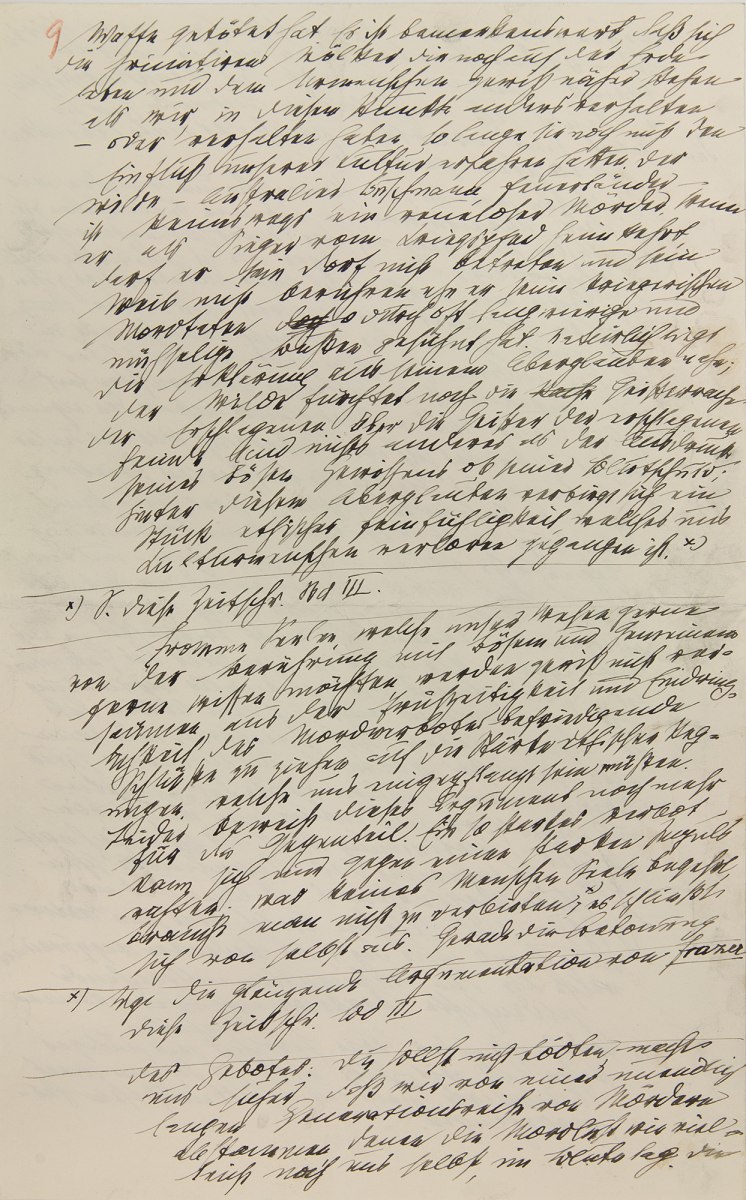 9 Waffe getötet hat. Es ist bemerkenswert, daß sich
die primitiven Völker die noch auf der Erde
leben und dem Urmenschen gewiß näher stehen
als wir, in diesem Punkte anders verhalten
– oder verhalten haben, solange sie noch nicht den
Einfluß unserer Kultur erfahren hatten. Der
Wilde – Australier Buschmann Feuerländer –
ist keineswegs ein reueloser Mörder. Wenn
er als Sieger vom Kriegspfad heimkehrt,
darf er sein Dorf nicht betreten und sein
Weib nicht berühren ehe er seine kriegerischen
Mordtaten durch oft langwierige und
mühselige Bußen gesühnt hat. Natürlich liegt
die Erklärung aus seinem Aberglauben nahe;
der Wilde fürchtet noch die Geisterrache
der Erschlagenen. Aber die Geister der erschlagenen
Feinde sind nichts anderes als der Ausdruck
seines bösen Gewissens ob seiner Blutschuld;
hinter diesem Aberglauben verbirgt sich ein
Stück ethischer Feinfühligkeit welches uns
Kulturmenschen verloren gegangen ist. x)
x) S. diese Zeitschr. Bd III.
Fromme Seelen welche unser Wesen gerne
von der Berührung mit Bösem und Gemeinem
ferne wissen möchten werden gewiß nicht ver-
säumen, aus der Frühzeitigkeit und Eindring-
lichkeit des Mordverbotes befriedigende
Schlüsse zu ziehen auf die Stärke ethischer Reg-
ungen, welche uns eingepflanzt sein müßten.
Leider beweist dieses Argument noch mehr
für das Gegenteil. Ein so starkes Verbot
kann sich nur gegen einen starken Impuls
richten. Was keines Menschen Seele begehrt,
braucht man nicht zu verbieten, x) es schließt
sich von selbst aus. Gerade die Betonung
x) Vgl die glänzende Argumentation von Frazer
diese Zeitschr. Bd III
des Gebotes: Du sollst nicht tödten, macht
uns sicher, daß wir von einer unendlich
langen Generationsreihe von Mördern
abstammen denen die Mordlust wie viel-
leicht noch uns selbst, im Blute lag. Die